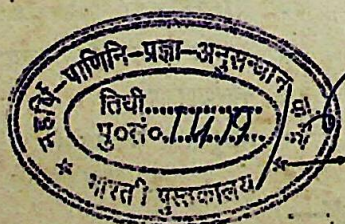 महर्षि-पाणिनि-प्रज्ञा-अनुसन्धान
तिथी..............
पु०सं०
भारती पुस्तकालय